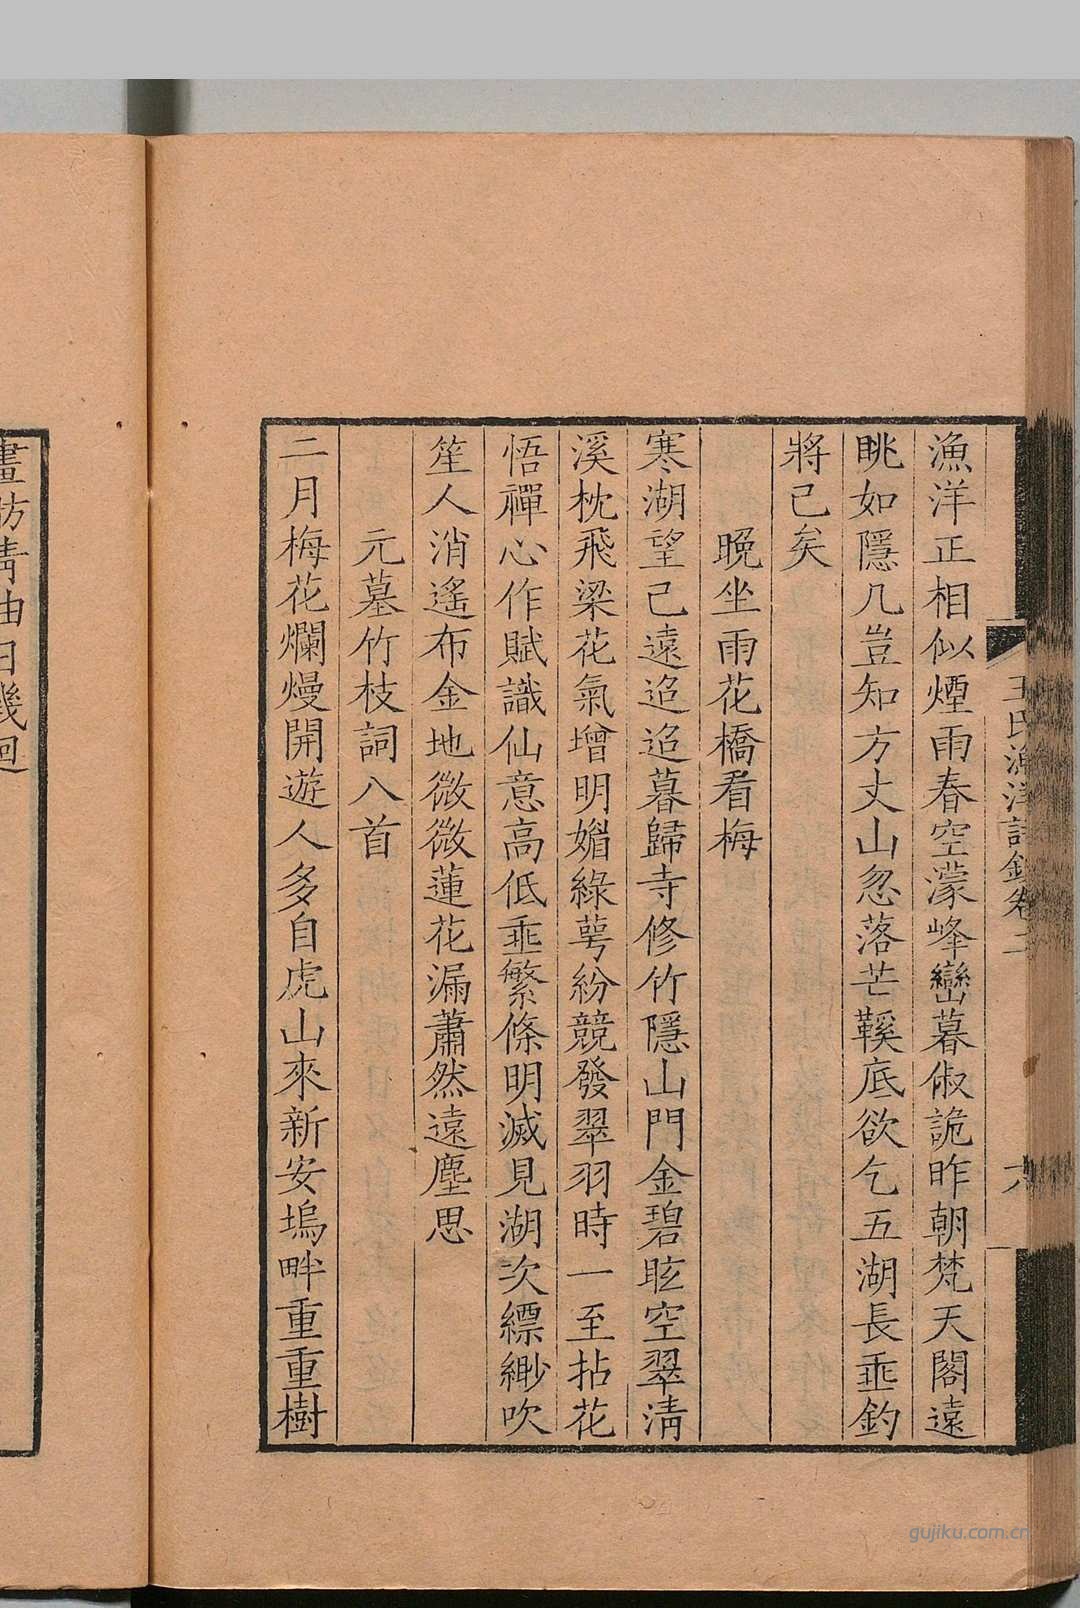 王氏漁洋詩鈔卷二
六
漁洋正相似煙雨春空濛峰巒暮俶詭昨朝梵天閣遠
眺如隱几豈知方丈山忽落芒鞵底欲乞五湖長垂釣
將已矣
晚坐雨花橋看梅
寒湖望已遠迢迢暮歸寺修竹隱山門金碧眩空翠清
溪枕飛梁花氣增明媚綠萼紛競發翠羽時一至拈花
悟禪心作賦識仙意高低垂繁條明滅見湖次縹緲吹
笙人消遙布金地微微蓮花漏蕭然遠塵思
元墓竹枝詞八首
二月梅花爛熳開遊人多自虎山來新安塢畔重重樹
畫舫青油日幾迴
gujiku.com.cn